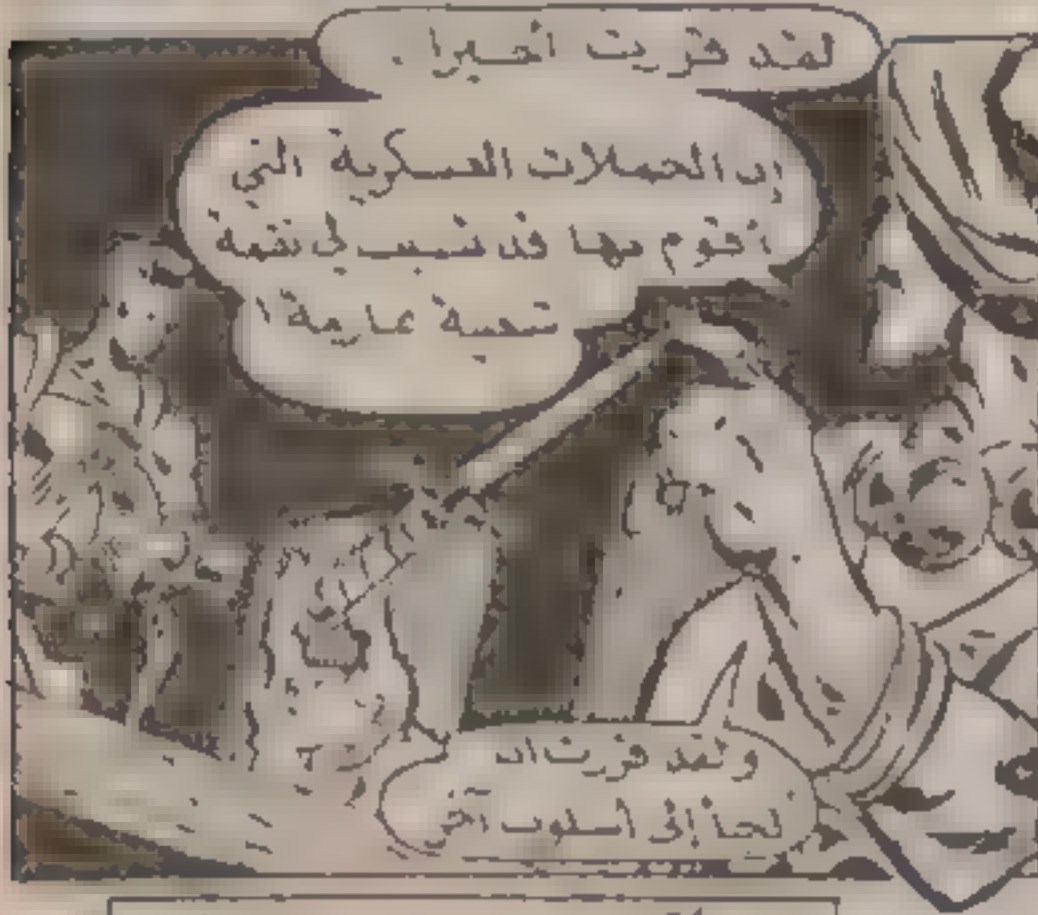 لقد قررت أخيرا .
إن الحملات العسكرية التي
أقوم بها قد تسبب لي نقمة
شعبية عارمة !
ولقد قررت أن
ألجأ إلى أسلوب آخر